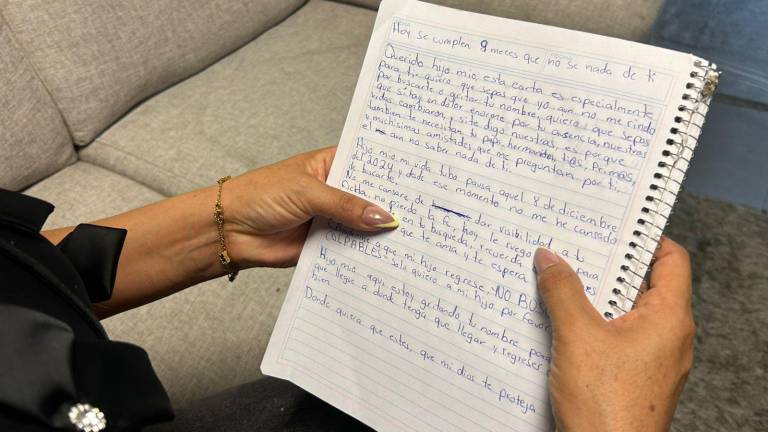 Hoy se cumplen 9 meces que no se nada de ti
Querido hijo mio, esta carta es especialmente
para ti, quiero que sepas que yo aun no me rindo
por buscarte o gritar tu nombre, quiero que sepas
que si hay un dolor enorme por tu ausencia, nuestras
vidas cambiaron, si te digo nuestras, es porque
tambien te necesitan tu papa, hermanos, tios, primos,
y muchisimas amistades, que me preguntan por ti,
el aun no saber nada de ti.
Hijo mio, mi vida tubo pausa, aquel 8 de diciembre
del 2024, y desde ese momento no me he cansado
de buscarte.
No me cansare de dar visibilidad a tu
ficha, no pierdo la fe, hoy le ruego para
en tu busqueda, recuerda
que te ama y te espera
a que mi hijo regrese, NO BUS
CULPABLES- Solo quiero a mi hijo por favor
Hijo mio, aqui estoy gritando tu nombre para
que llegue a donde tenga que llegar y regreses
bien
Donde quiera que estes, que mi dios te proteja